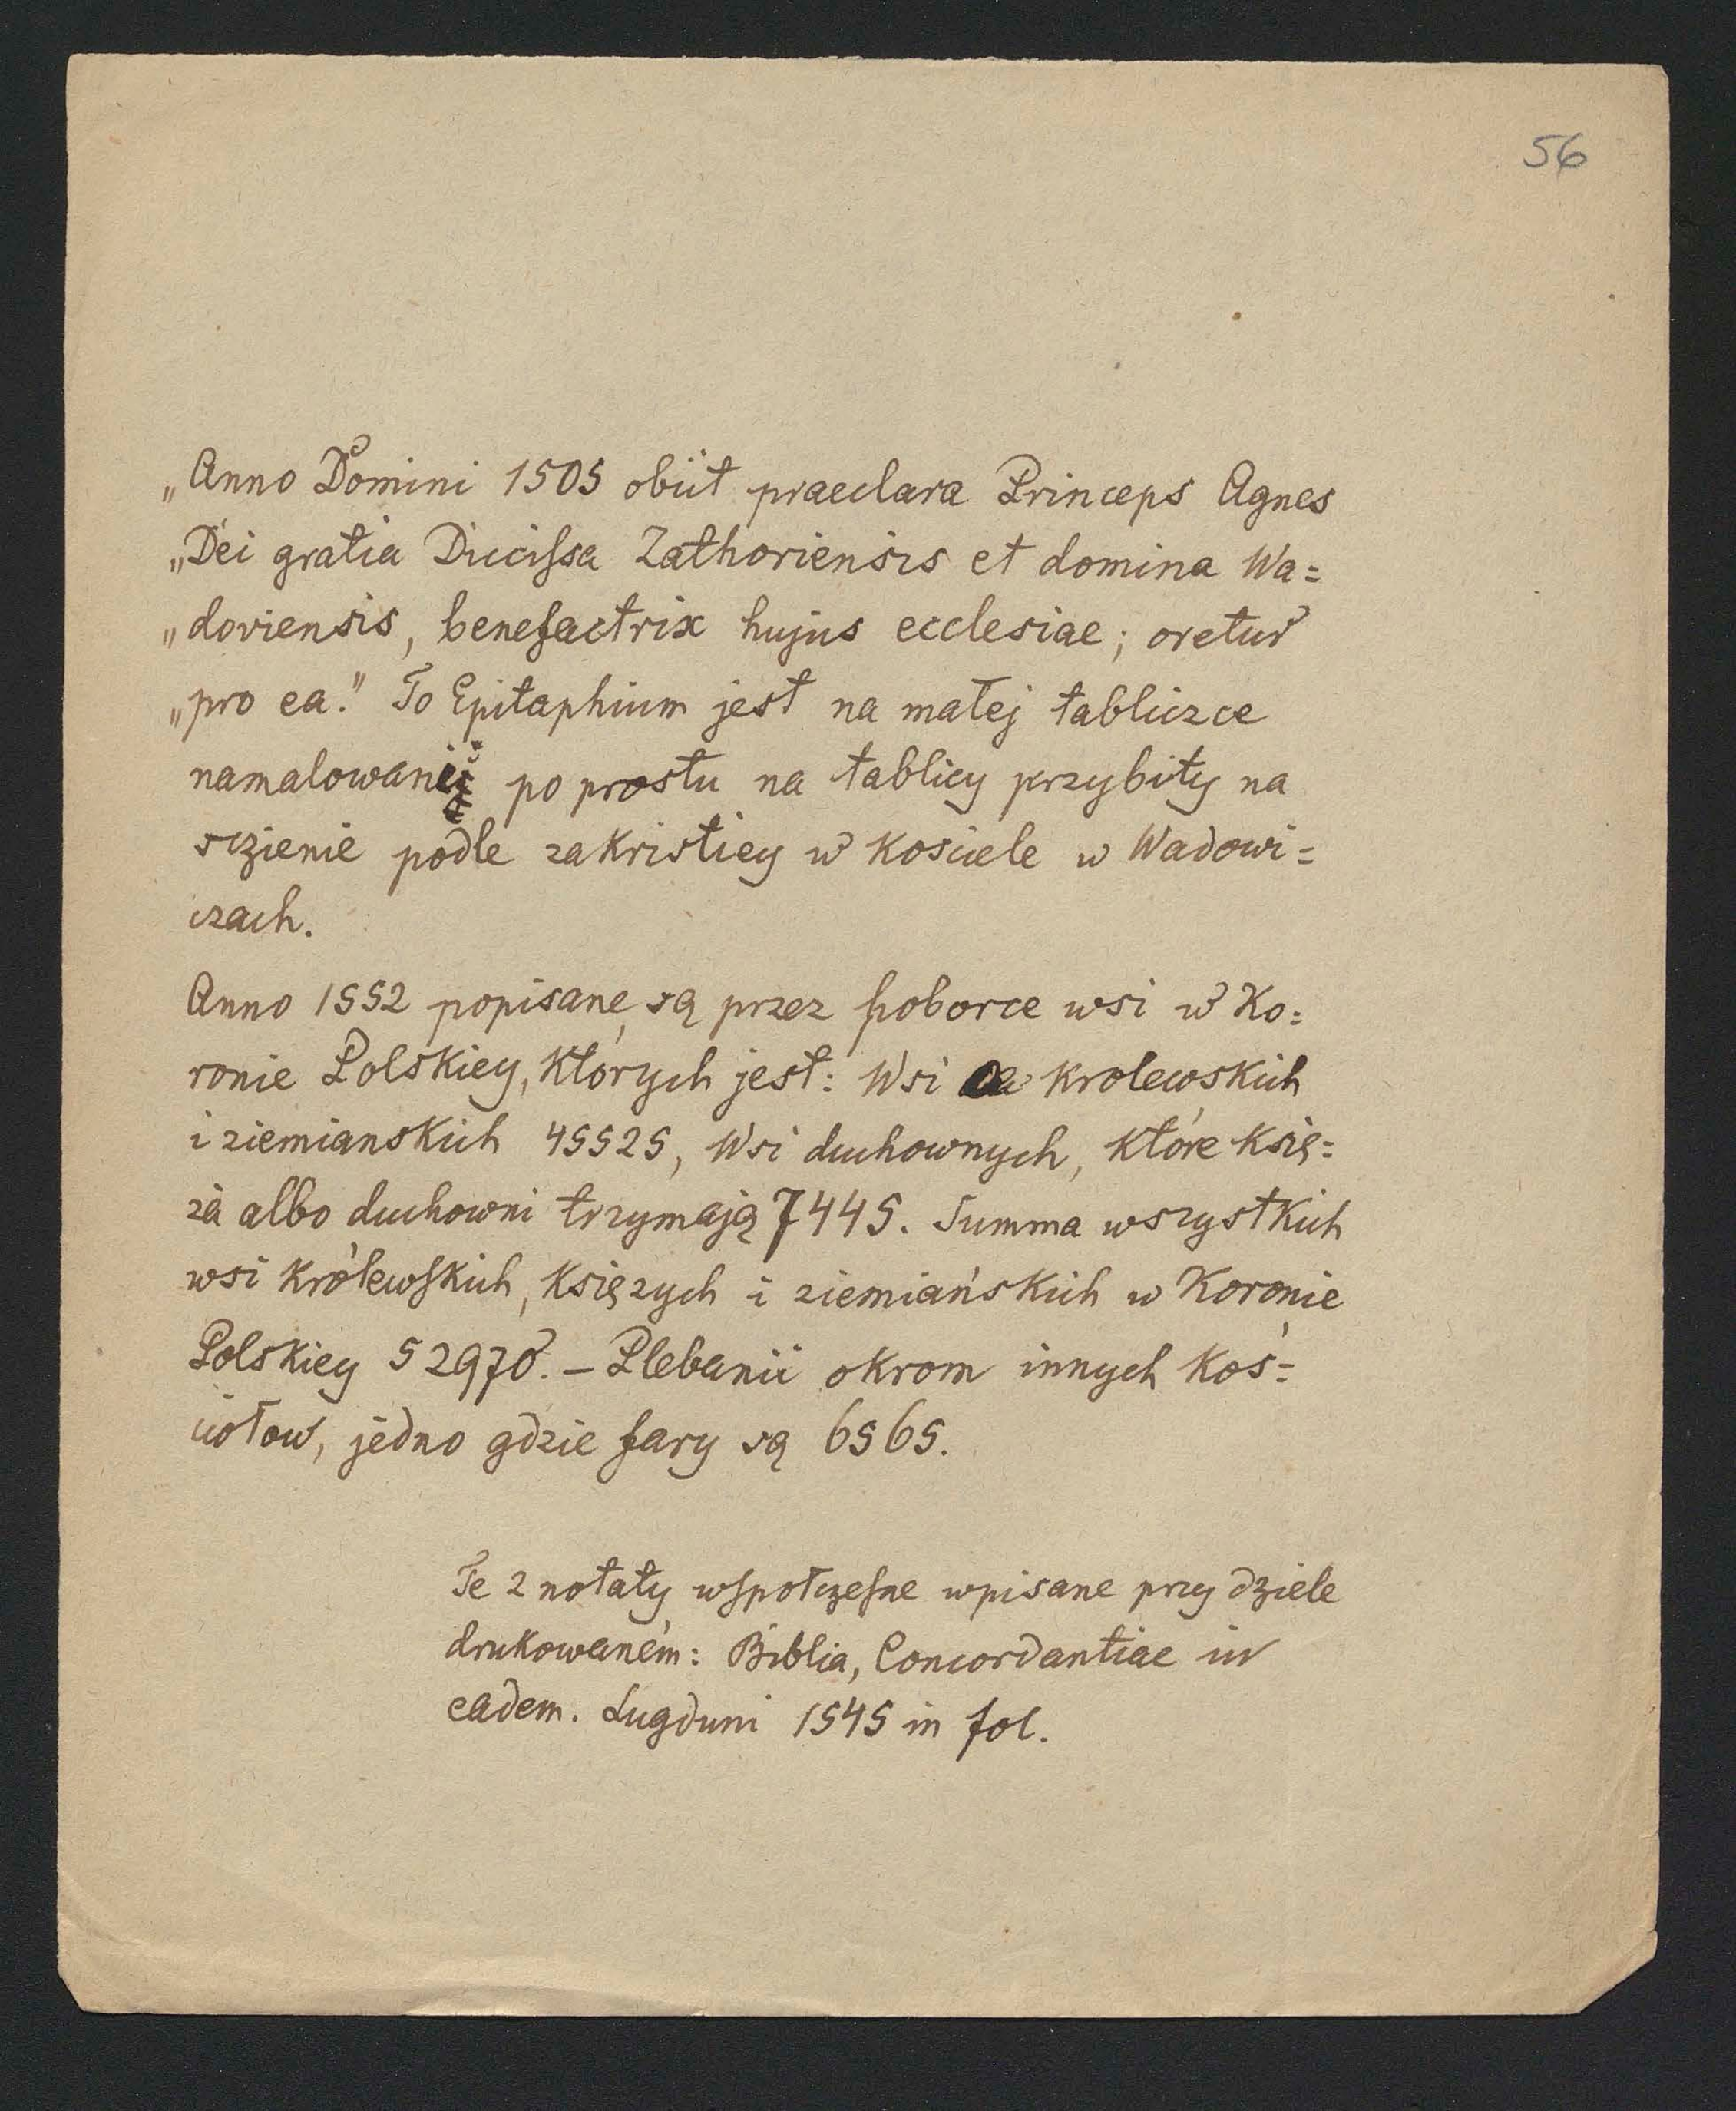 56
„Anno Domini 1505 obiit praeclara Princeps Agnes
„Dei gratia Ducissa Zathoriensis et domina Wa=
„doviensis, benefactrix hujus ecclesiae; oretur
„pro ea." To Epitaphium jest na małej tabliczce
namalowanej po prostu na tablicy przybity na
sczienie podle zakristiey w kosciele w Wadowi=
czach.
Anno 1552 popisane są przez poborce wsi w Ko=
ronie Polskiey, których jest: Wsi krolewskich
i ziemianskich 45525, Wsi duchownych, które księ=
ża albo duchowni trzymają 7445. Summa wszystkich
wsi królewskich, księzych i ziemiańskich w Koronie
Polskiey 52970. – Plebanii okrom innych koś=
ciołow, jedno gdzie fary są 6565.
Te 2 notaty wspołczesne wpisane przy dziele
drukowaném: Biblia, Concordantiae in
eadem. Lugduni 1545 in fol.